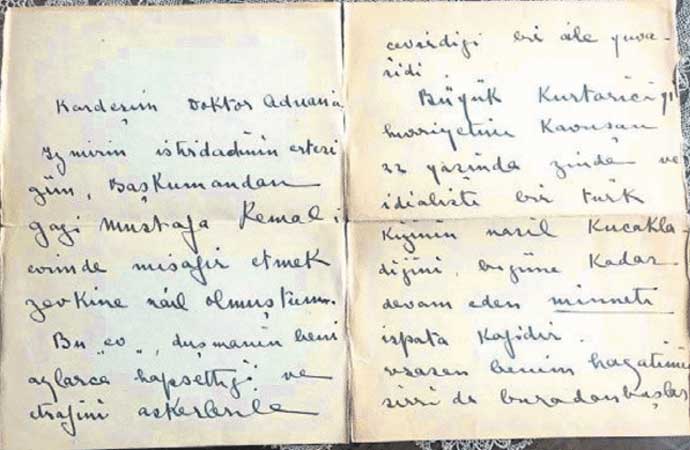 Kardeşim Doktor Adnana
İzmirin istirdadının ertesi
gün, Başkumandan
gazi Mustafa Kemal i
evimde misafir etmek
zevkine nail olmuştum.
Bu "ev", duşmanın beni
aylarca hapsettiği ve
etrafini askerlerile
cevirdiği bir aile yuva-
sidi.
Büyük Kurtarıcıyı
hurriyetine Kavuşan
22 yaşinda zinde ve
idialisti bir türk
Kizinin nasil Kucakla-
diğini, bugüne Kadar
devam eden minneti
ispata Kafidir.
esasen benim hayatimin
sirri de buradan başlar